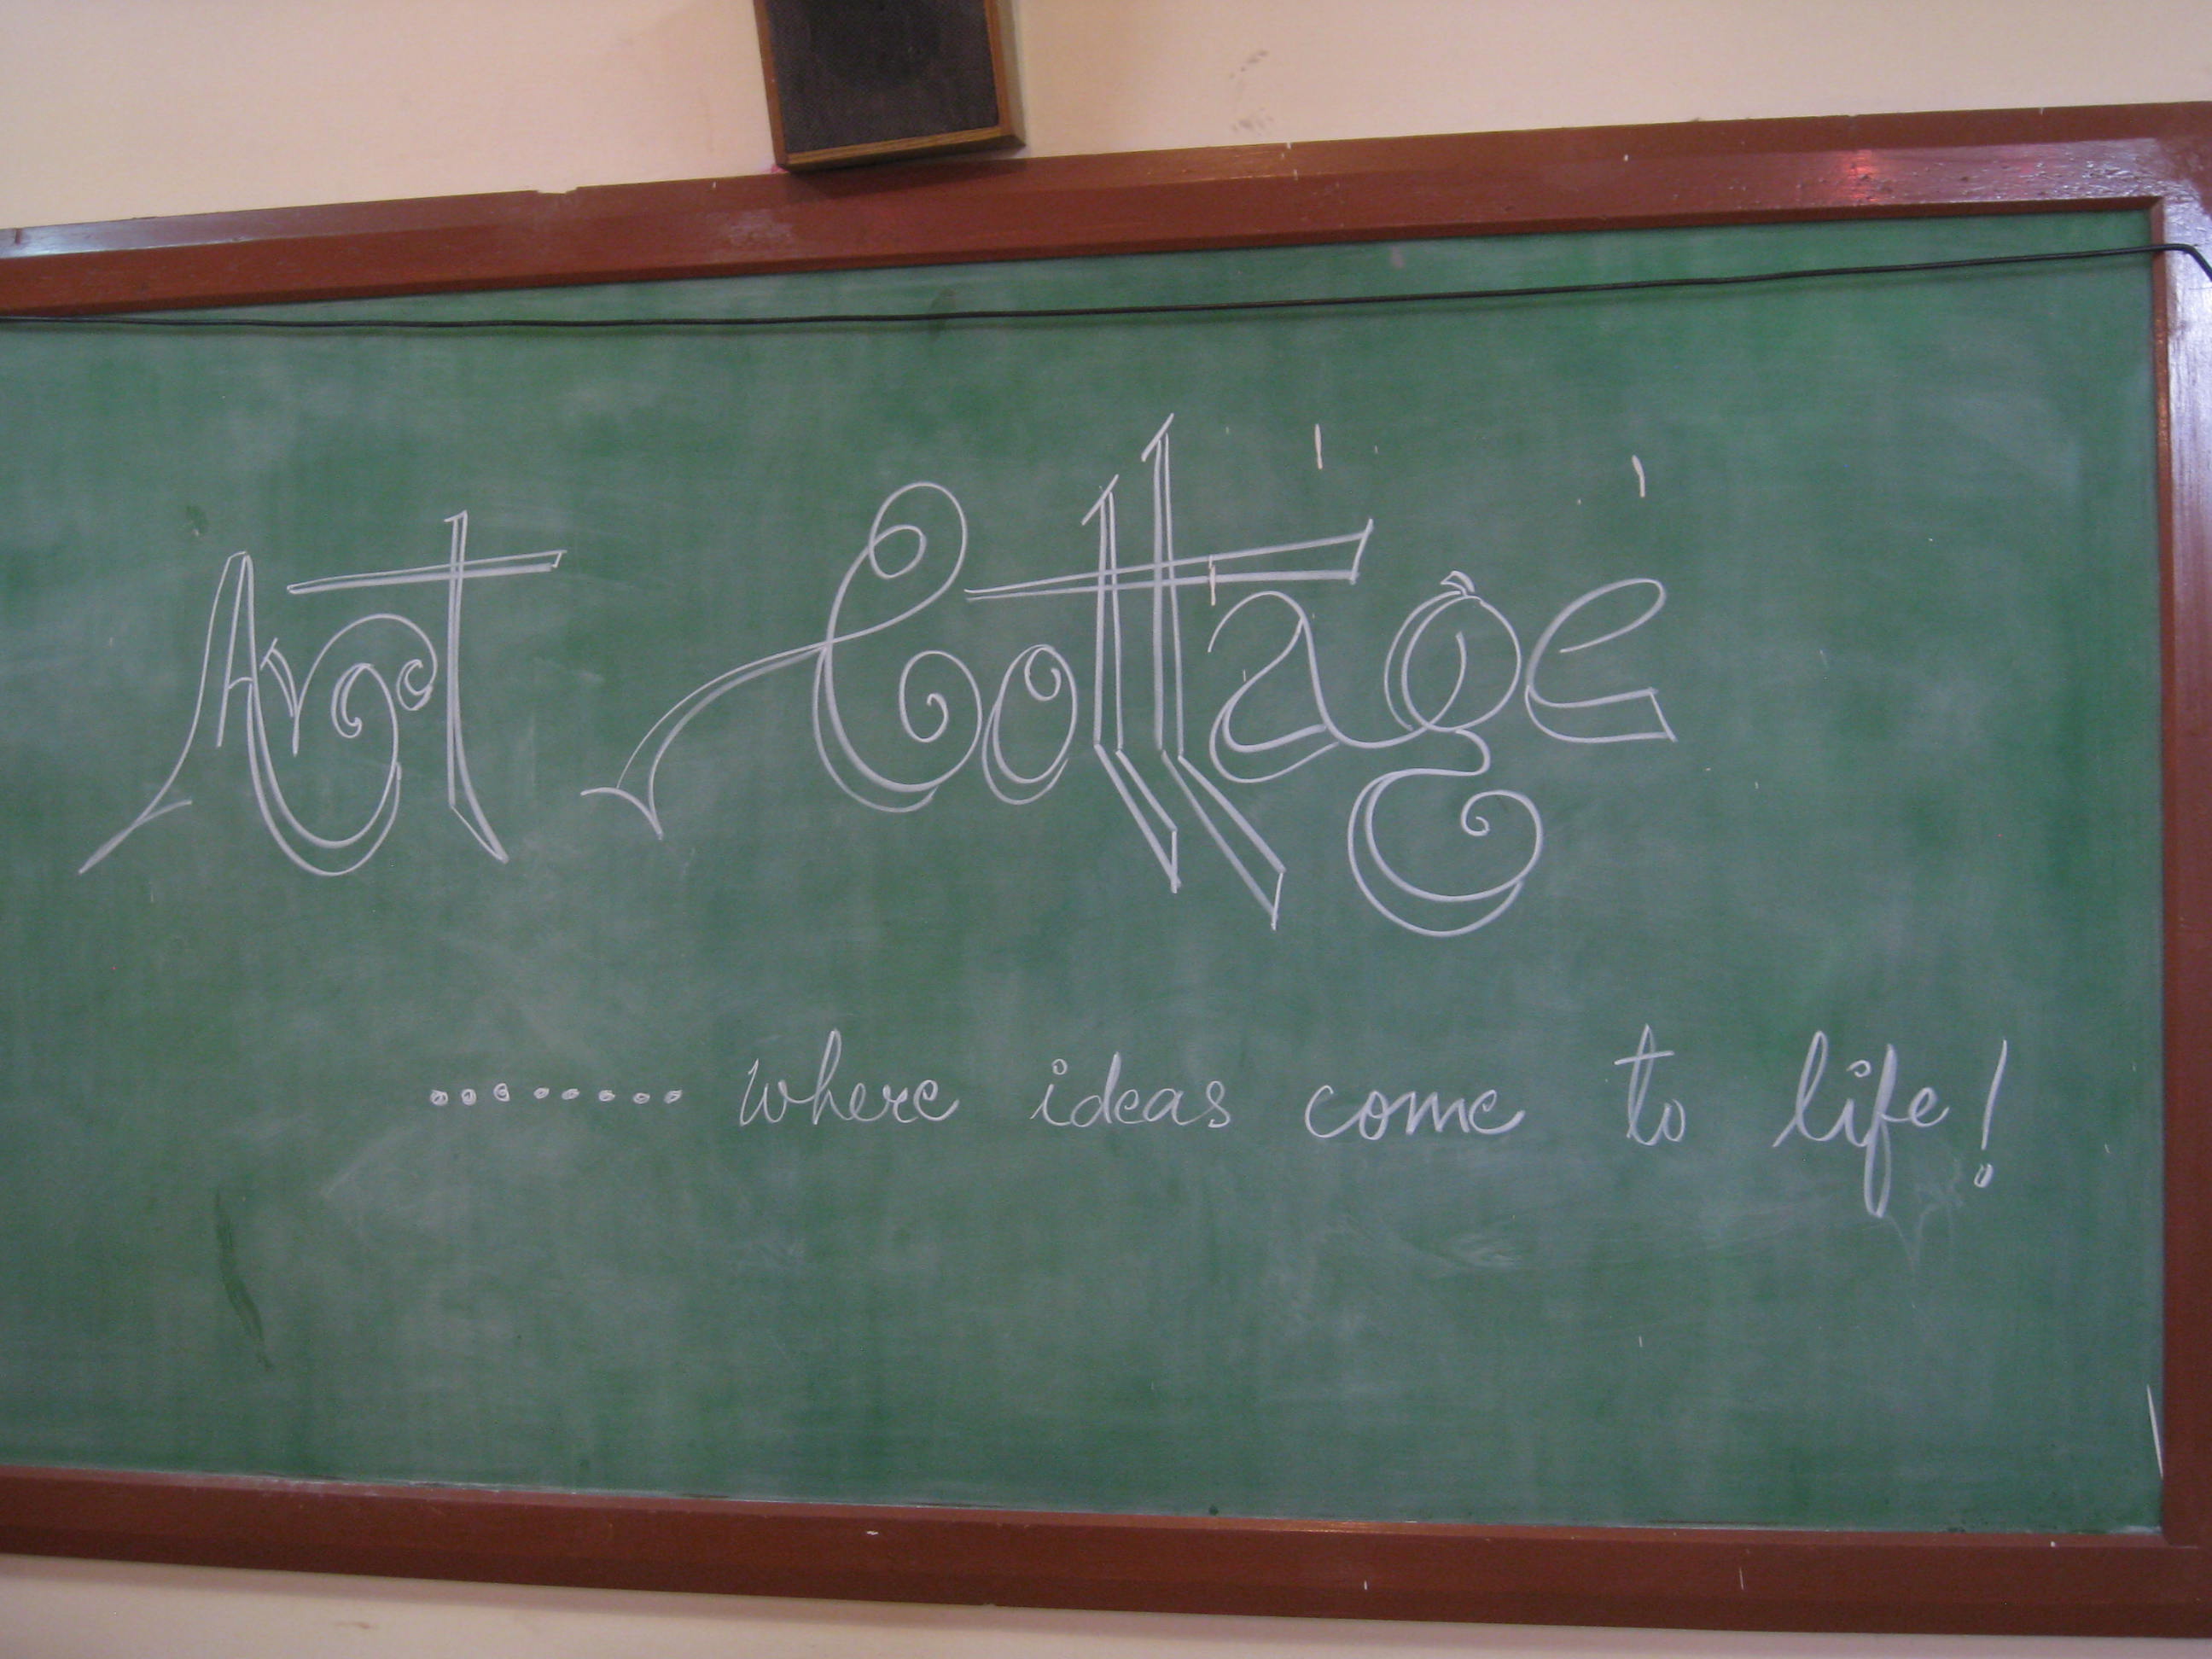 Art Cottage
........ where ideas come to life!